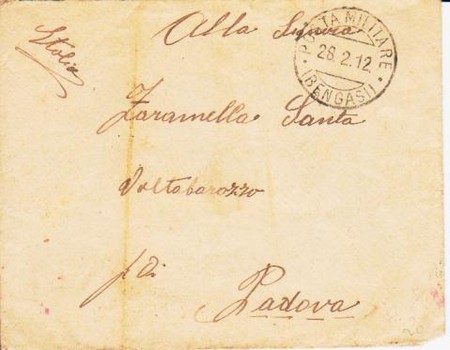 Italia
Alla Signora
POSTA MILITARE
28.2.12.
(BENGASI)
Zaramella Santa
Voltabarozzo
p di
Padova